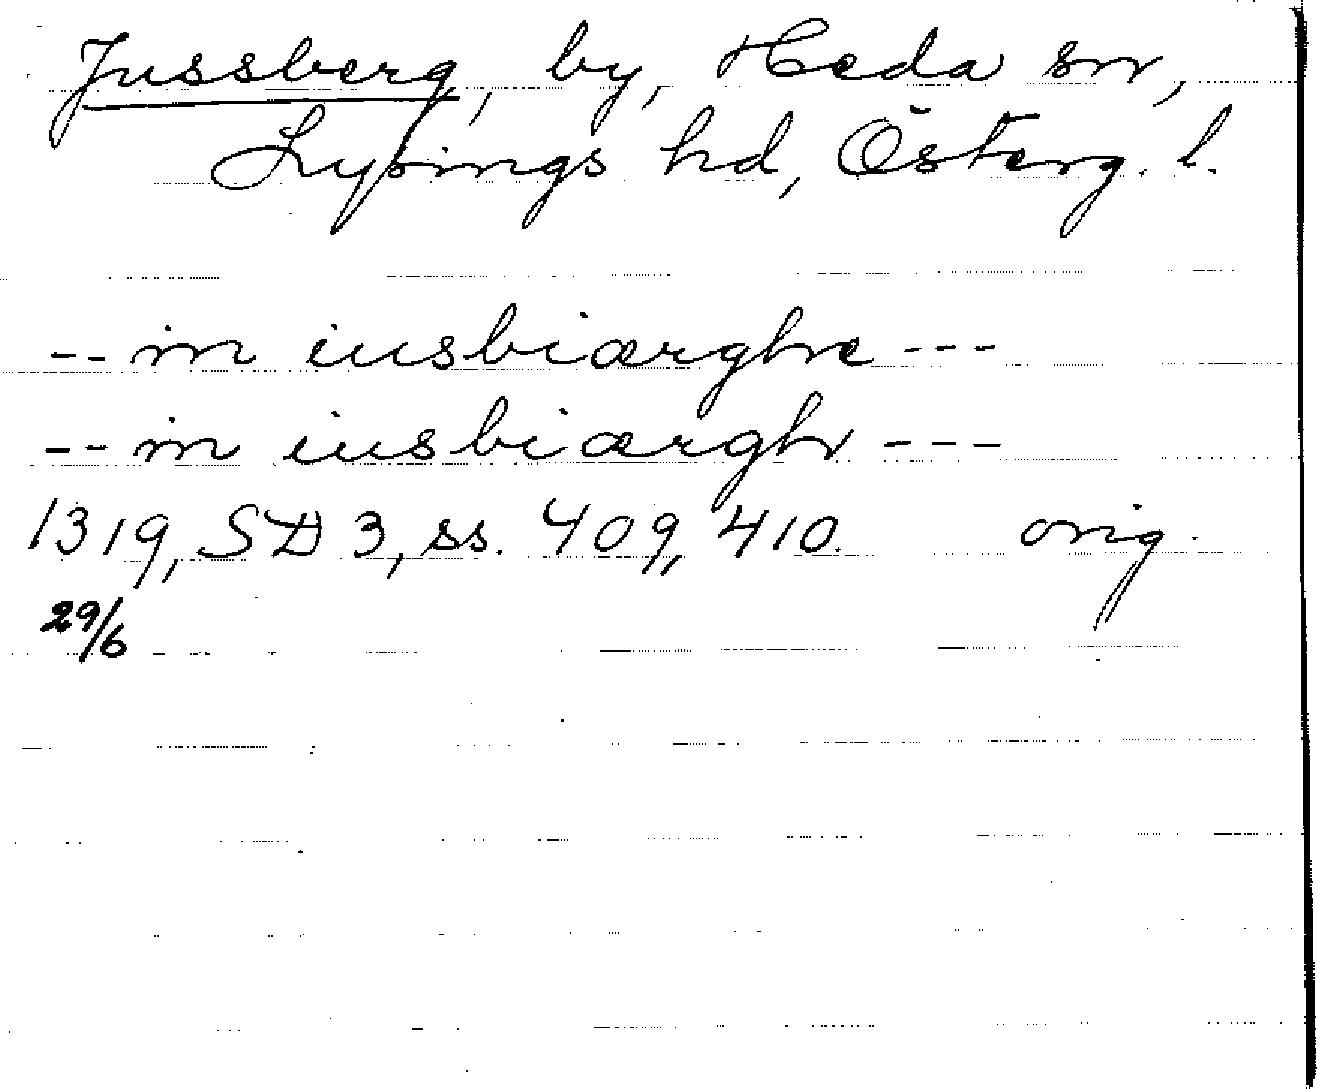 Jussberg, by, Heda sn,
Lysings hd, Österg. l.
-- in iusbiærghe ---
-- in iusbiærgh ---
1319, SD 3, ss. 409, 410. orig.
29/6